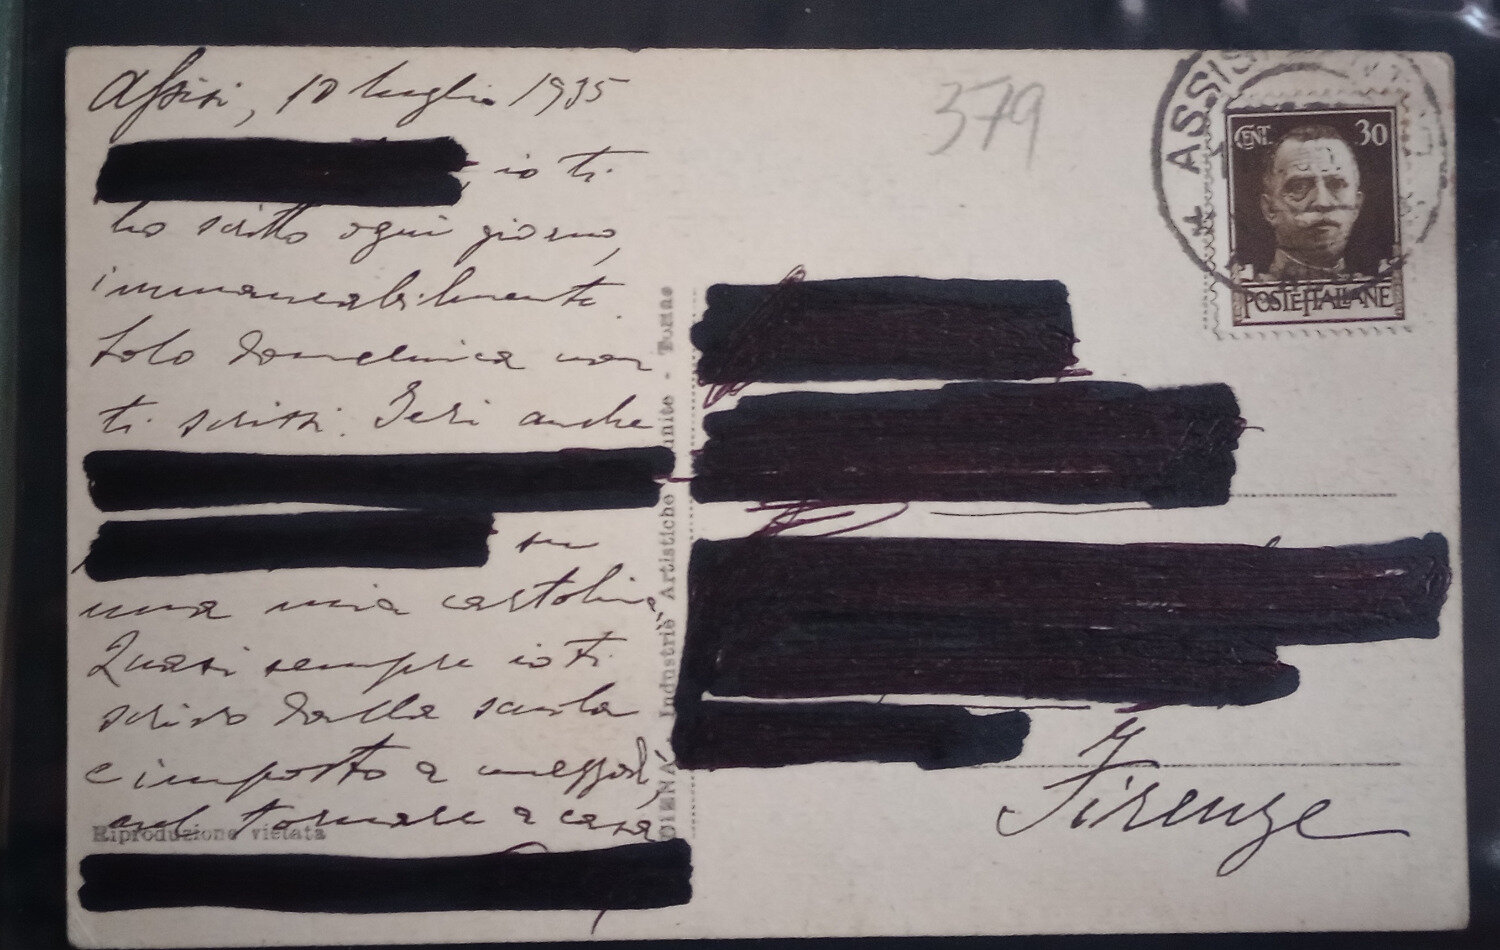 Assisi, 10 luglio 1935
, io ti
ho scritto ogni giorno,
immancabilmente
Solo domenica non
ti scrissi. Ieri anche
su
una mia cartolina
Quasi sempre io ti
scrivo dalla scuola
e imposto a mezzodì,
nel tornare a casa
Riproduzione vietata
DIENA, Industrie Artistiche
379
ASSISI
CENT. 30
POSTE ITALIANE
Firenze